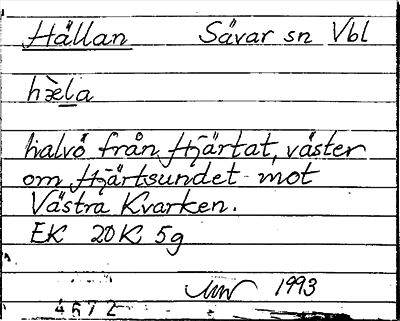 Hällan Sävar sn Vbl
hæ̀la
halvö från Hjärtat, väster
om Hjärtsundet mot
Västra Kvarken.
EK 20K 5g
1993
4672